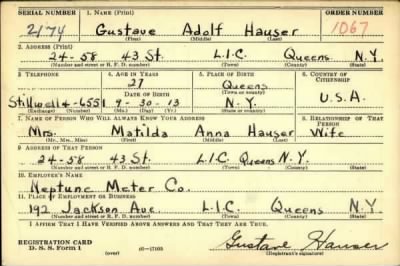 SERIAL NUMBER 1. NAME (Print) ORDER NUMBER
2174 Gustave Adolf Hauser 1067
(First) (Middle) (Last)
2. ADDRESS (Print)
24-58 43 St. L.I.C. Queens N.Y.
(Number and street or R. F. D. number) (Town) (County) (State)
3. TELEPHONE 4. AGE IN YEARS 5. PLACE OF BIRTH 6. COUNTRY OF CITIZENSHIP
27 Queens
DATE OF BIRTH (Town or county)
Stillwell 4-6551 9-30-13 N.Y. U.S.A.
(Exchange) (Number) (Mo.) (Day) (Yr.) (State or country)
7. NAME OF PERSON WHO WILL ALWAYS KNOW YOUR ADDRESS 8. RELATIONSHIP OF THAT PERSON
Mrs. Matilda Anna Hauser Wife
(Mr., Mrs., Miss) (First) (Middle) (Last)
9. ADDRESS OF THAT PERSON
24-58 43 St. L.I.C. Queens N.Y.
(Number and street or R. F. D. number) (Town) (County) (State)
10. EMPLOYER'S NAME
Neptune Meter Co.
11. PLACE OF EMPLOYMENT OR BUSINESS
192 Jackson Ave. L.I.C. Queens N.Y
(Number and street or R. F. D. number) (Town) (County) (State)
I AFFIRM THAT I HAVE VERIFIED ABOVE ANSWERS AND THAT THEY ARE TRUE.
REGISTRATION CARD
D. S. S. Form 1 (over) 16-17105 Gustave Hauser
(Registrant's signature)